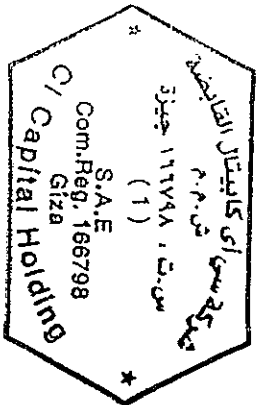 سى آى كابيتال القابضة
ش.م.م
س.ت. ١٦٦٧٩٨ جيزة
(1)
S.A.E
Com.Reg. 166798
Giza
CI Capital Holding